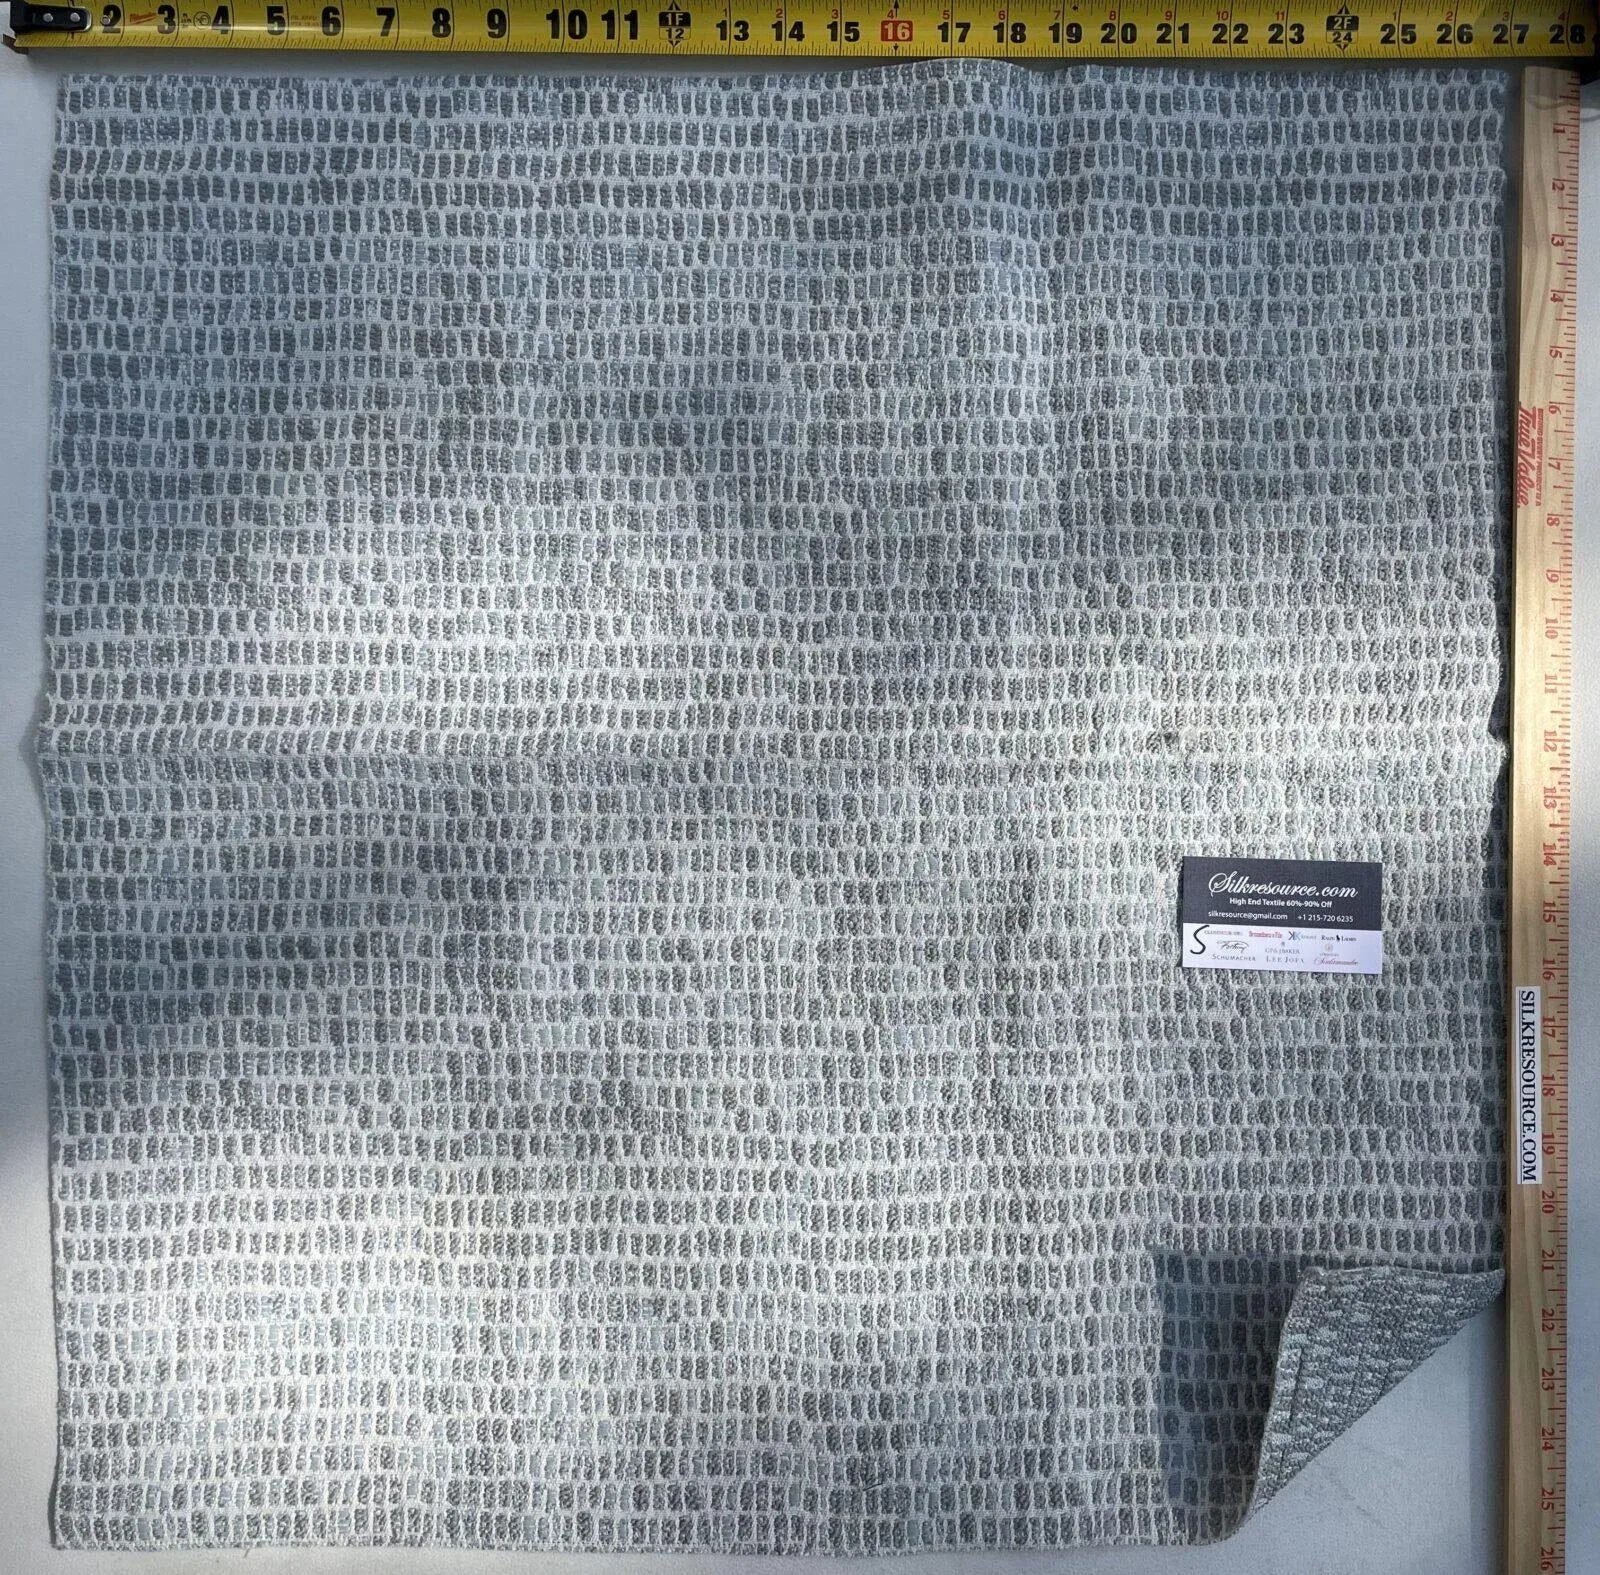 2 3 4 5 6 7 8 9 10 11 1F 12 13 14 15 16 17 18 19 20 21 22 23 2F 24 25 26 27 28
1
2
3
4
5
6
True Value
7
8
9
10
11
12
13
14
Silkresource.com
High End Textile 60%-90% Off
silkresource@gmail.com +1 215-720 6235
RALPH LAUREN
SCHUMACHER LEE JOFA
15
16
SILKRESOURCE.COM
17
18
19
20
21
22
23
24
25
26